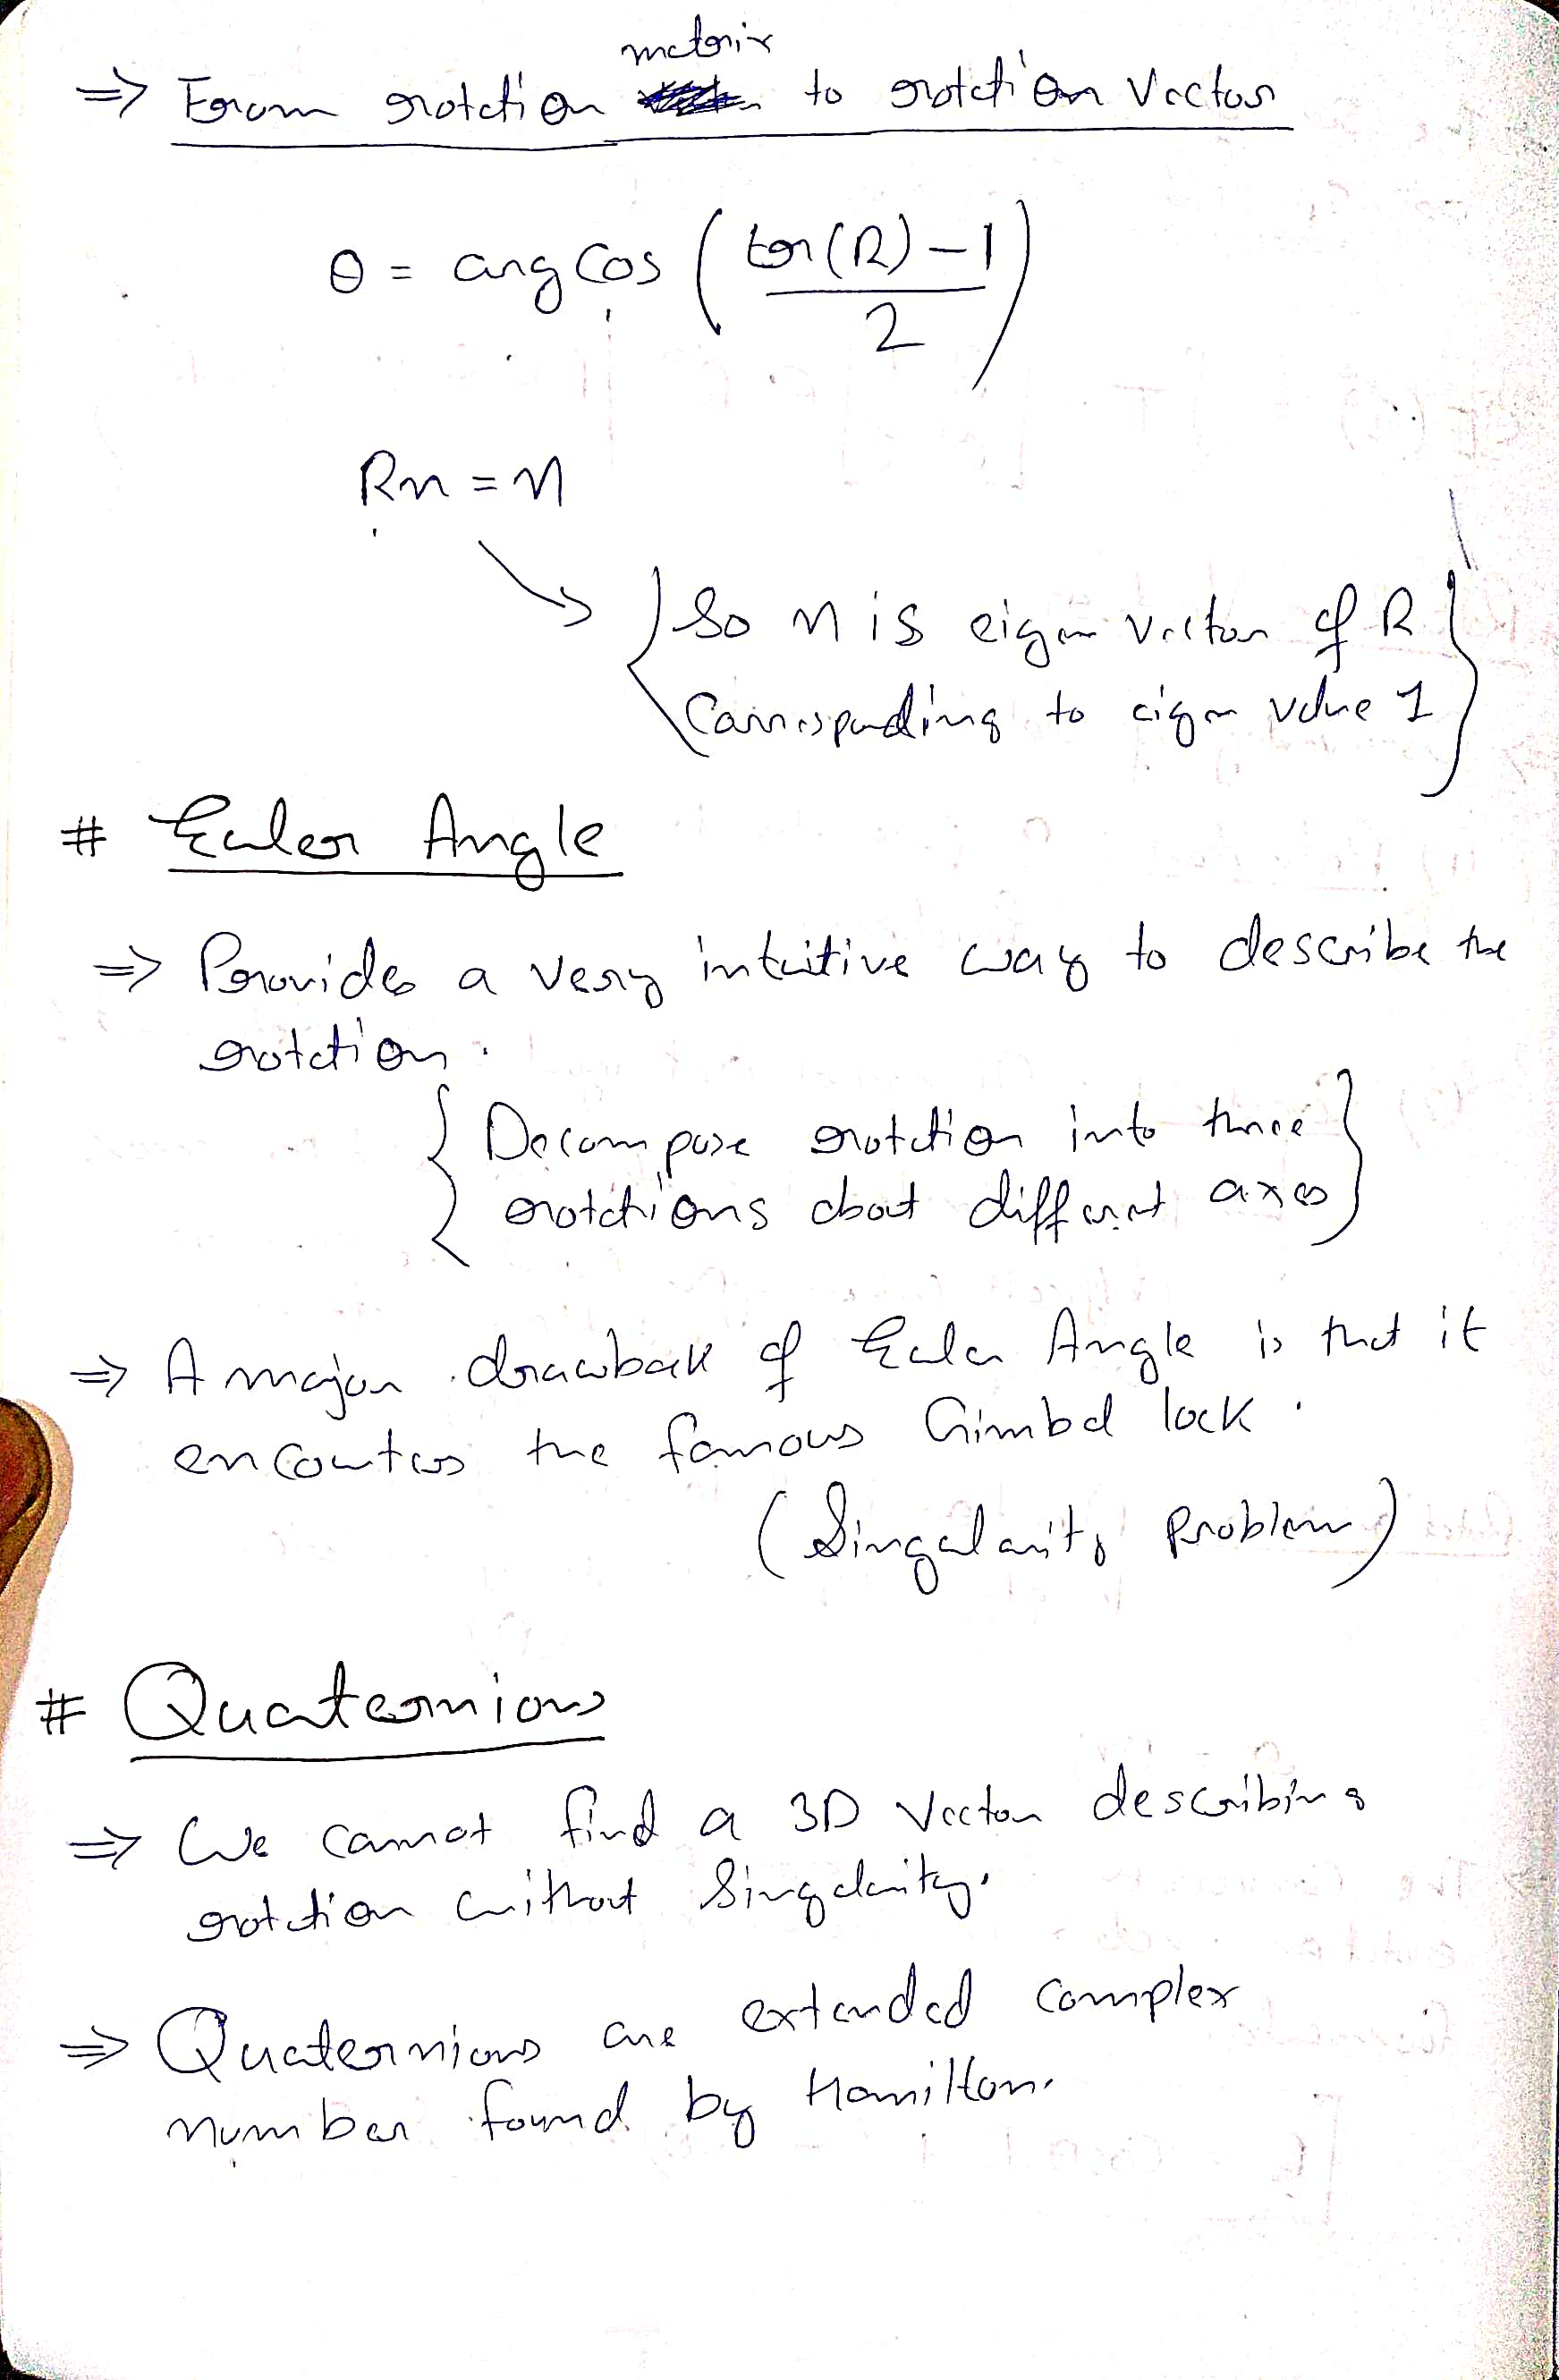 matrix
⇒ From rotation to rotation Vector
θ = arg cos ( (tr(R) - 1) / 2 )
Rn = n
→ { So n is eigen vector of R
Corresponding to eigen value 1 }
# Euler Angle
⇒ Provides a very intuitive way to describe the
rotation.
{ Decompose rotation into three
rotations about different axes }
⇒ A major drawback of Euler Angle is that it
encounters the famous Gimbal lock.
(Singularity Problem)
# Quaternions
⇒ We cannot find a 3D Vector describing
rotation without Singularity.
⇒ Quaternions are extended complex
number found by Hamilton.